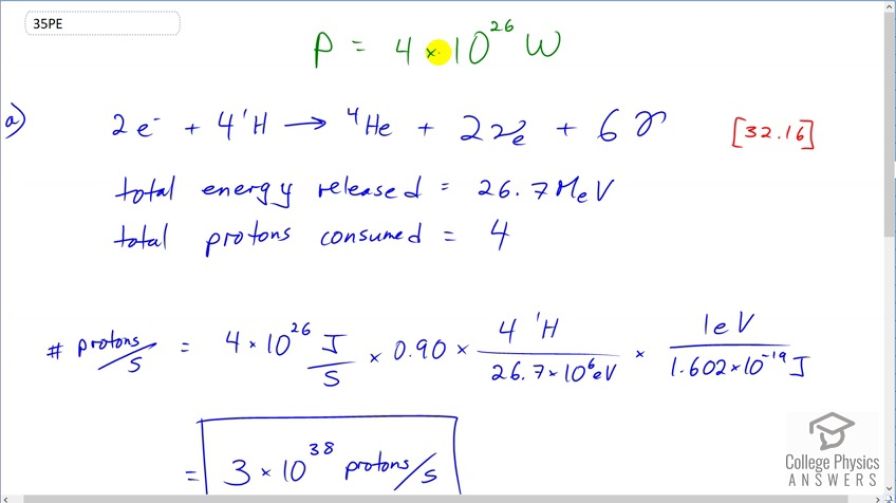 35PE
P = 4 × 10²⁶ W
a) 2e⁻ + 4¹H → ⁴He + 2νₑ + 6γ [32.16]
total energy released = 26.7 MeV
total protons consumed = 4
# protons/s = 4 × 10²⁶ J/s × 0.90 × 4 ¹H / 26.7 × 10⁶ eV × 1 eV / 1.602 × 10⁻¹⁹ J
= 3 × 10³⁸ protons/s
College Physics
ANSWERS